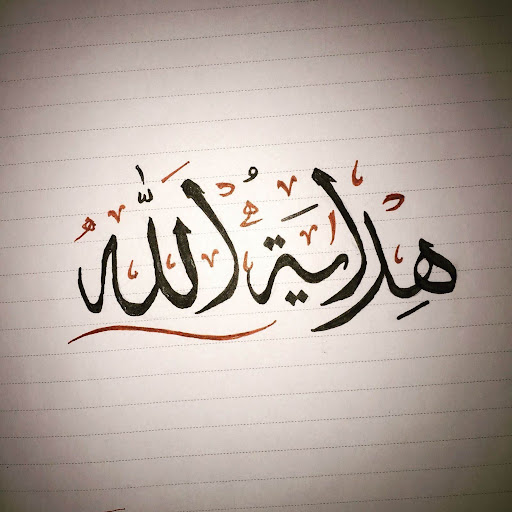 هِدَايَةُ اللّٰه